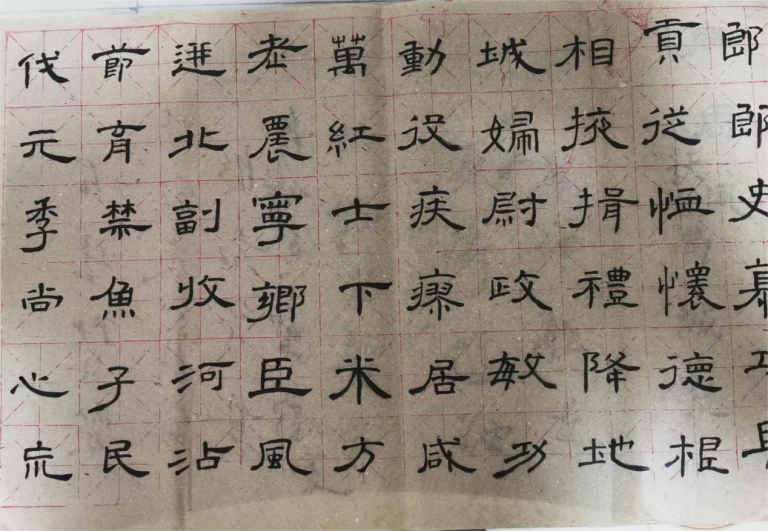 郎郎史慕功
貢從恤懷德根
相掖揖禮降地
城婦尉政敏功
動役疾瘝居咸
萬紅士下米方
老農寧鄉臣風
進北副收河沾
節育禁魚子民
伐元季尚心荒